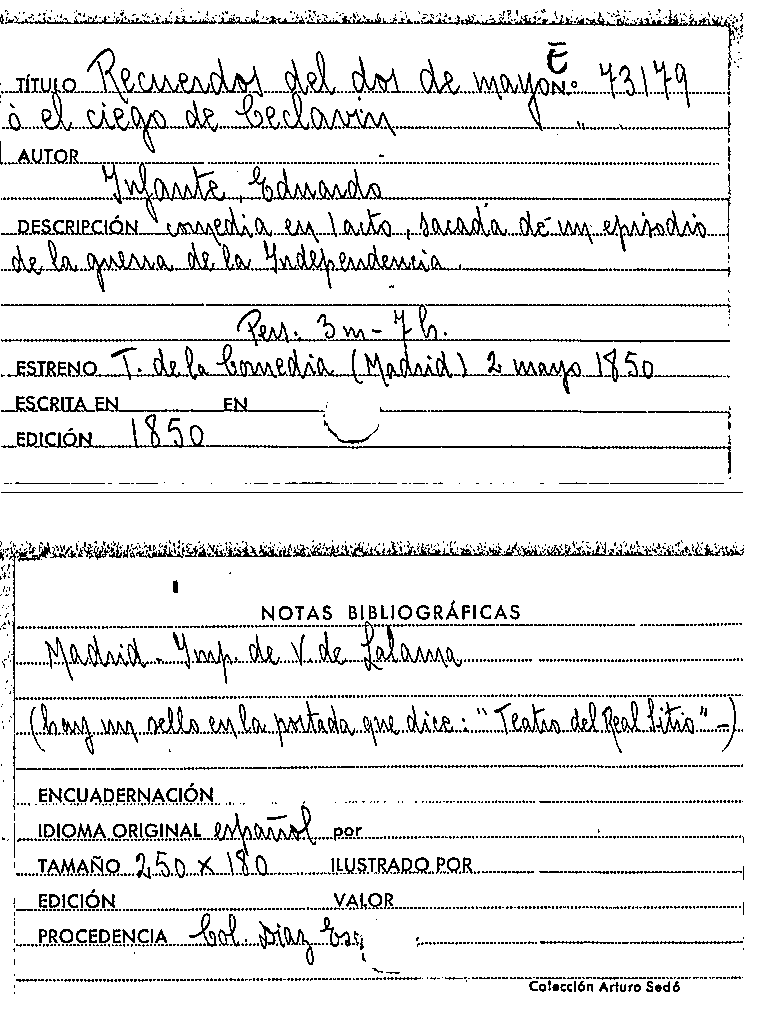 E
TÍTULO Recuerdos del dos de mayo N.º 73179
ò el ciego de Ceclavin "
AUTOR
Infante, Eduardo
DESCRIPCIÓN comedia en 1 acto, sacada de un episodio
de la guerra de la Independencia.
Pers: 3 m - 7 h.
ESTRENO T. de la Comedia (Madrid) 2 mayo 1850
ESCRITA EN EN
EDICIÓN 1850
NOTAS BIBLIOGRÁFICAS
Madrid - Imp. de V. de Lalama
(hay un sello en la portada que dice: "Teatro del Real Sitio" -)
ENCUADERNACIÓN
IDIOMA ORIGINAL español por
TAMAÑO 250 x 180 ILUSTRADO POR
EDICIÓN VALOR
PROCEDENCIA Col. Díaz
Colección Arturo Sedó